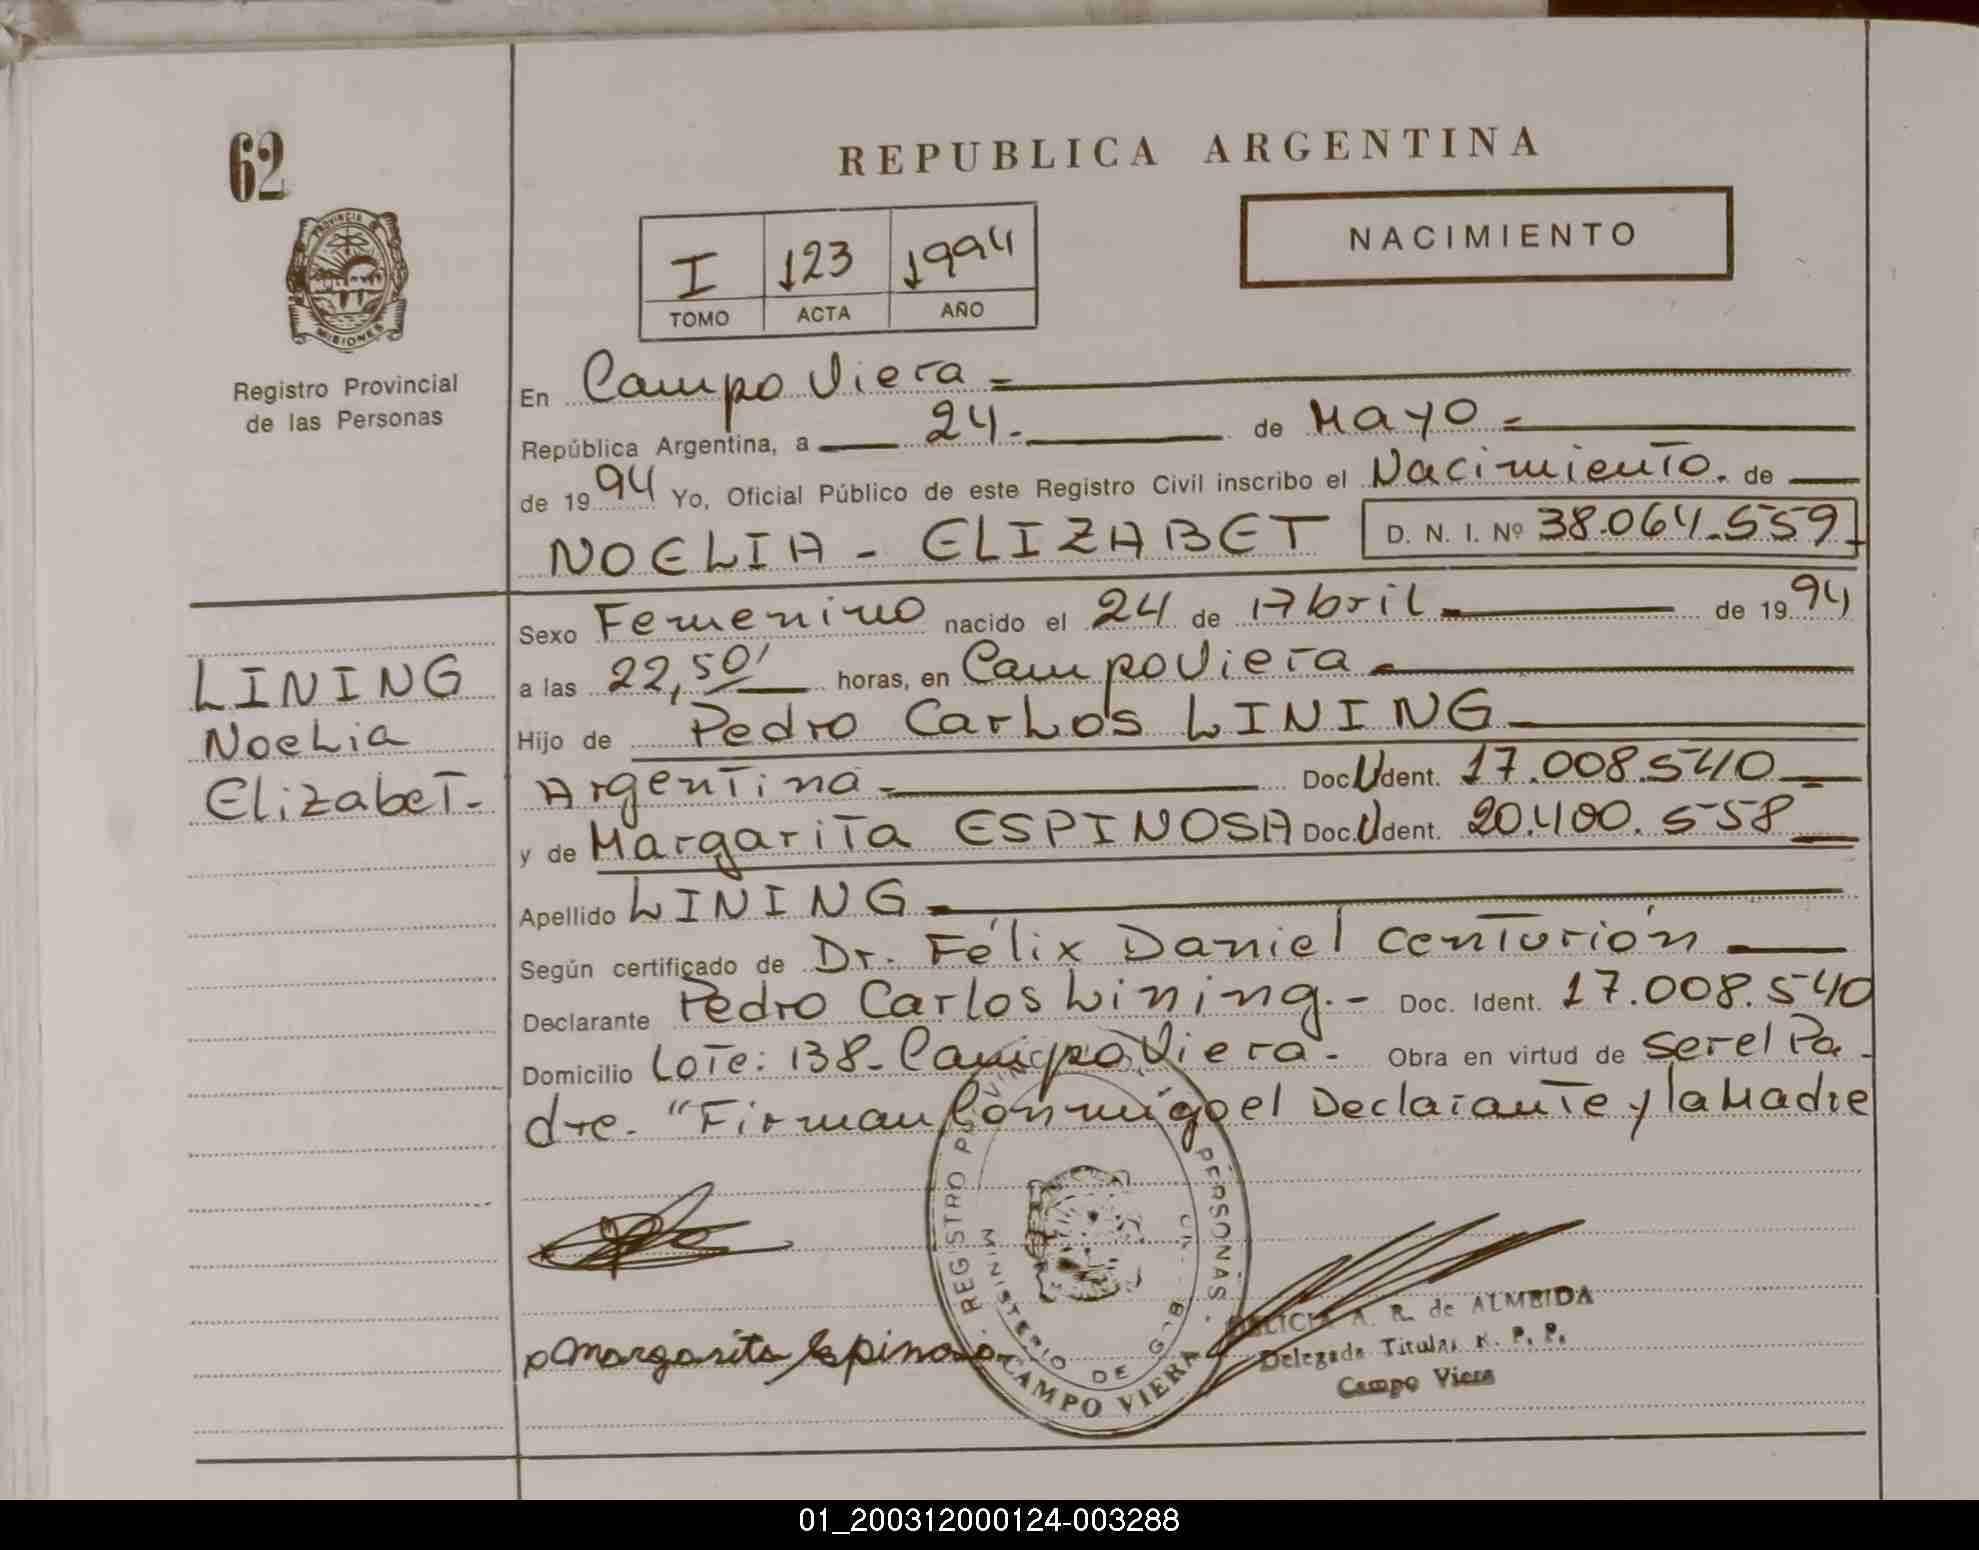 62
REPUBLICA ARGENTINA
NACIMIENTO
I 123 1994
TOMO ACTA AÑO
PROVINCIA
MISIONES
Registro Provincial
de las Personas
En Campo Viera
República Argentina, a 24 de Mayo
de 1994 Yo, Oficial Público de este Registro Civil inscribo el Nacimiento. de
NOELIA - ELIZABET D. N. I. Nº 38.064.559
Sexo Femenino nacido el 24 de Abril de 1994
LINING
Noelia
Elizabet.-
a las 22,50' horas, en Campo Viera
Hijo de Pedro Carlos LINING
Argentina Doc. Ident. 17.008.540
y de Margarita ESPINOSA Doc. Ident. 20.400.558
Apellido LINING
Según certificado de Dr. Félix Daniel Centurión
Declarante Pedro Carlos Lining.- Doc. Ident. 17.008.540
Domicilio Lote: 138- Campo Viera- Obra en virtud de ser el Pa-
dre. "Firman Conmigo el Declarante y la Madre
REGISTRO PERSONAS
MINISTERIO DE
CAMPO VIERA
Margarita Espinosa
A. R. de ALMEIDA
Delegada Titular R. P. P.
Campo Viera
01_200312000124-003288